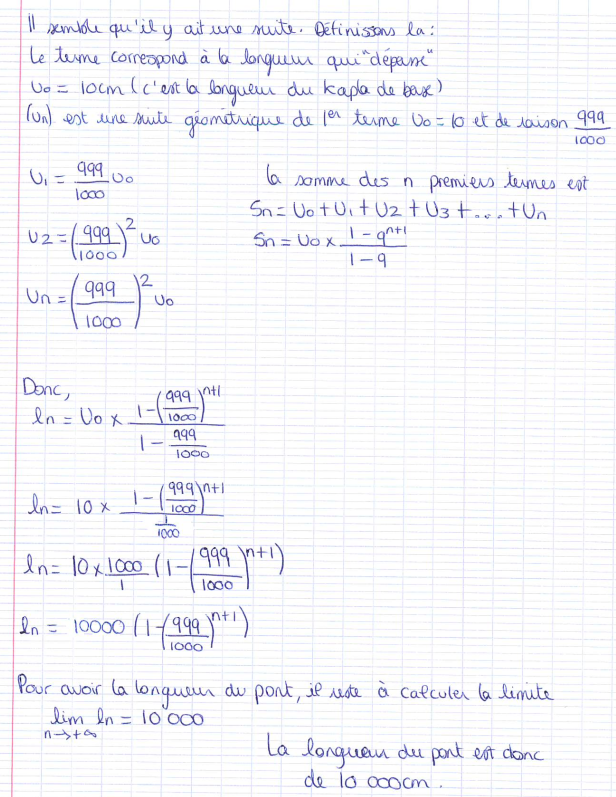 Il semble qu'il y ait une suite. Définissons la :
Le terme correspond à la longueur qui "dépasse"
U0 = 10cm (c'est la longueur du Kapla de base)
(Un) est une suite géométrique de 1er terme U0 = 10 et de raison 999/1000
U1 = 999/1000 U0
U2 = (999/1000)^2 U0
Un = (999/1000)^2 U0
la somme des n premiers termes est
Sn = U0 + U1 + U2 + U3 + .... + Un
Sn = U0 × (1 - q^(n+1))/(1 - q)
Donc,
ln = U0 × (1 - (999/1000)^(n+1))/(1 - 999/1000)
ln = 10 × (1 - (999/1000)^(n+1))/(1/1000)
ln = 10 × 1000/1 (1 - (999/1000)^(n+1))
ln = 10000 (1 - (999/1000)^(n+1))
Pour avoir la longueur du pont, il reste à calculer la limite
lim ln = 10 000
n→+∞
La longueur du pont est donc
de 10 000cm.